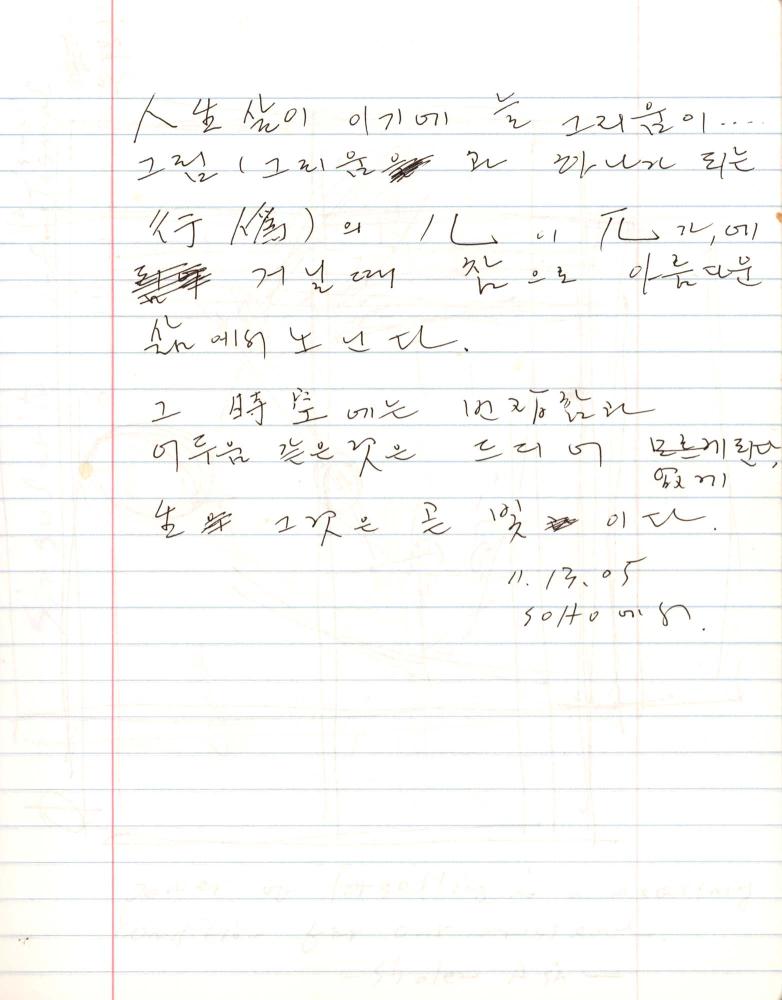 人生 삶이 이기에 늘 그리움이....
그림 (그리움과 하나가 되는
行 僞)의 儿 이 兀 가,에
거닐때 참으로 아름다운
삶에서 노닌다.
그 時空에는 번잡함과
어두움 같은것은 드디어 모르게란다,
없게
生 그것은 곧 빛 이다.
11.13.05
SOHO에서.